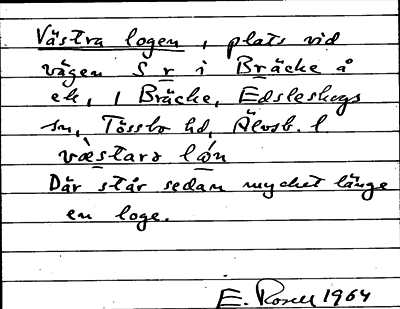 Västra logen, plats vid
vägen S r i Bräcke å
ek, i Bräcke, Edsleskogs
sn, Tössbo hd, Älvsb. l
væ̀starə lọ́n
Där står sedan mycket länge
en loge.
E. 1964